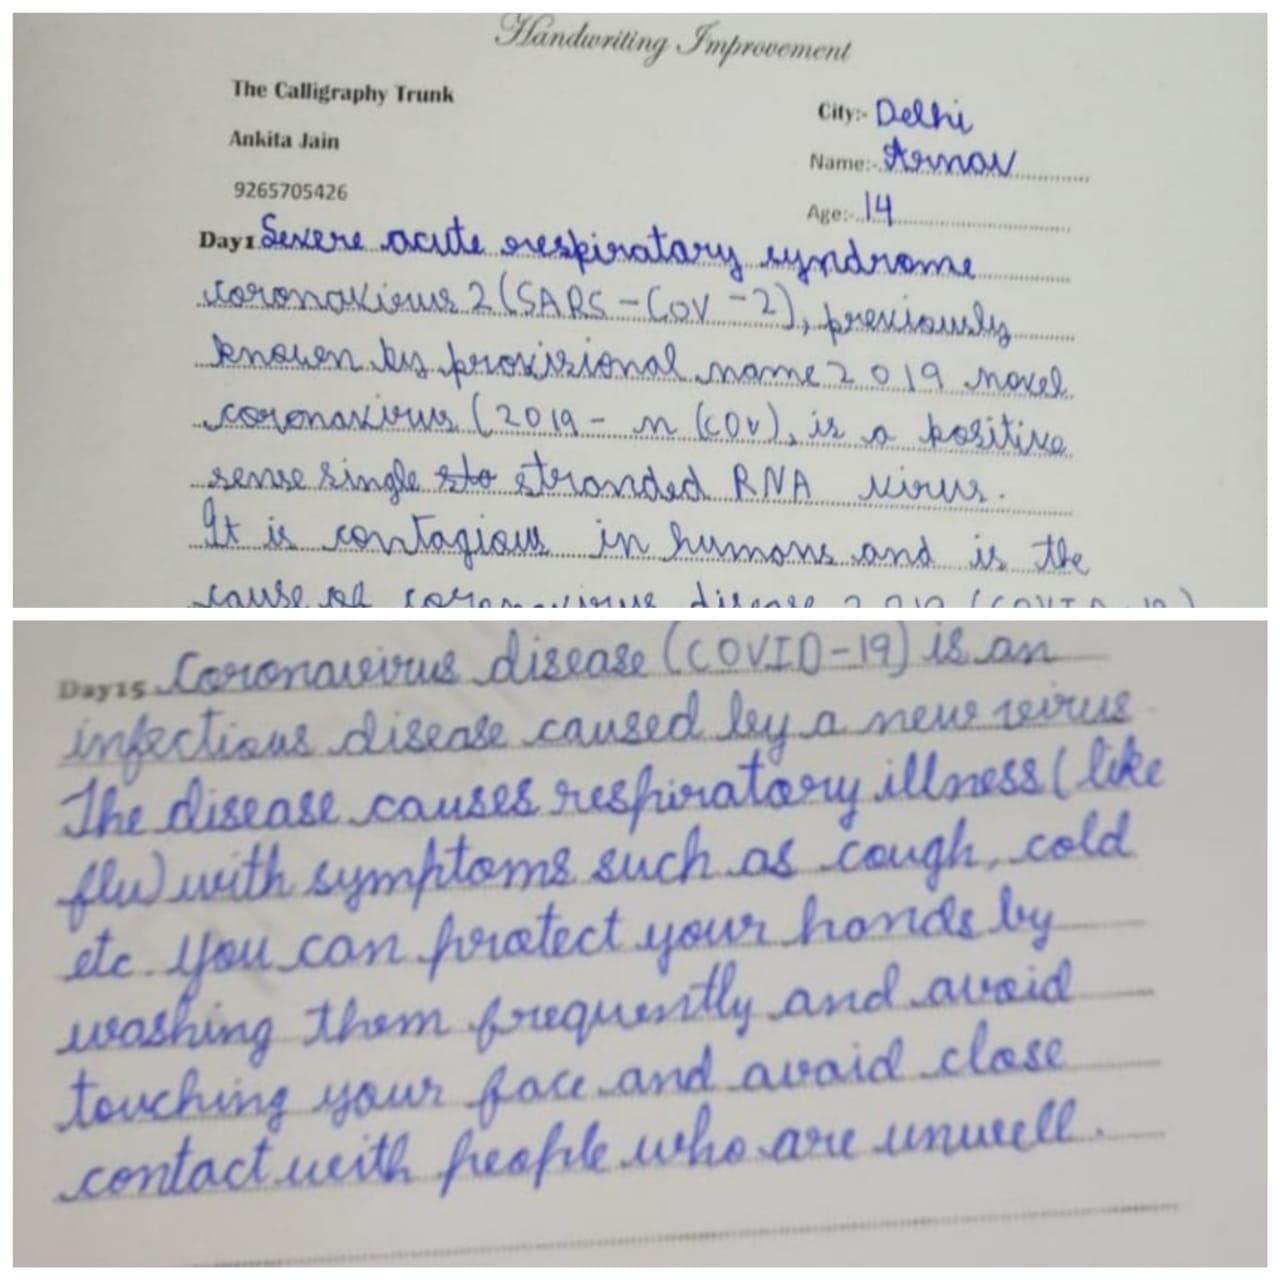 Handwriting Improvement
The Calligraphy Trunk
City:- Delhi
Ankita Jain
Name:- Arnav
9265705426
Age:- 14
Day1 Severe acute respiratary syndrome
coronavirus 2 (SARS-CoV-2), previously
known by provisional name 2019 novel
coronavirus (2019-n(COV), is a positive
sense single sta stranded RNA virus.
It is contagious in humans and is the
cause of coronavirus disease 2019 (COVID-19)
Day15 Coronavirus disease (COVID-19) is an
infectious disease caused by a new virus.
The disease causes respiratory illness (like
flu) with symptoms such as cough, cold
etc. You can protect your hands by
washing them frequently and avoid
touching your face and avoid close
contact with people who are unwell.